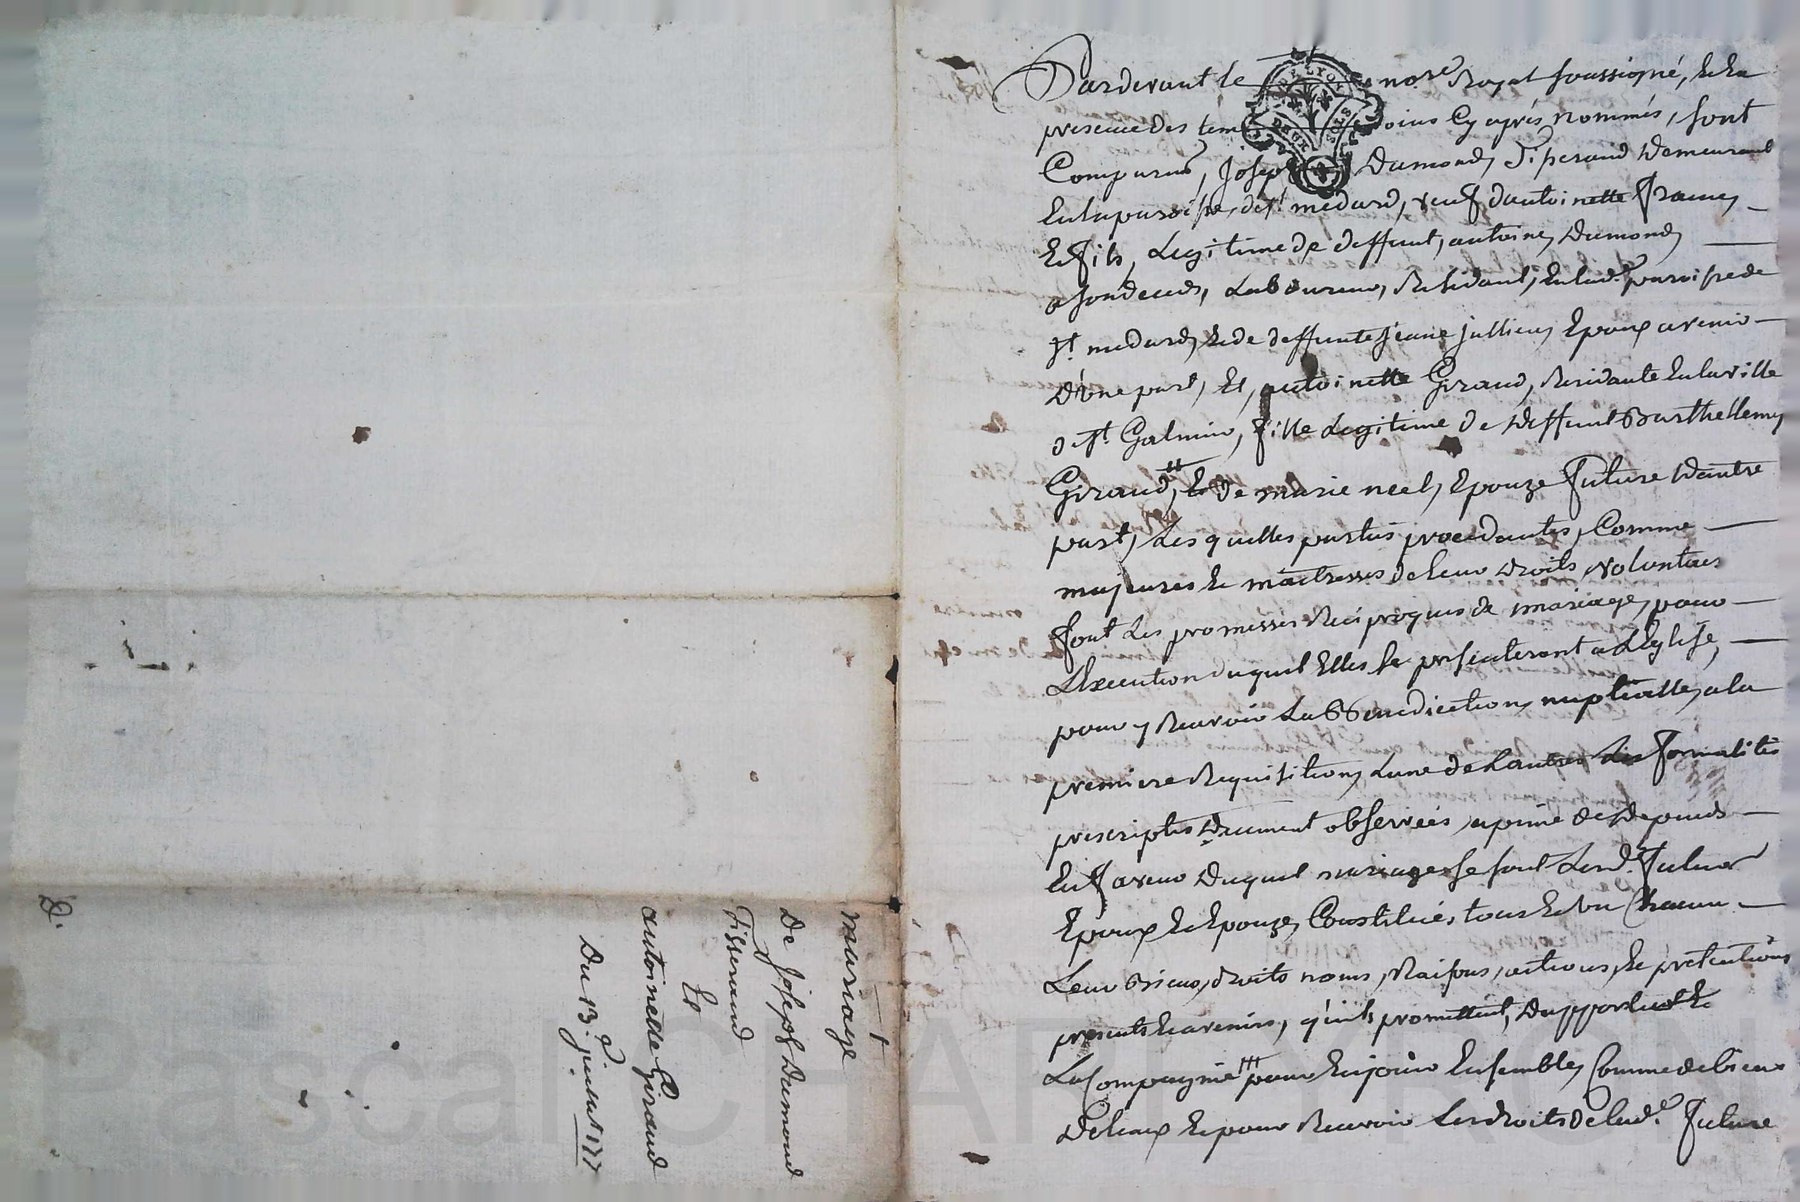 Pardevant le nore Royal soussigné, & En
presence des temoins Cy aprés nommés, sont
Comparus, Joseph Dumond, Tisserand Demeurant
En la paroisse de st medard, veuf d'antoinette
& fils, Legitime de deffunt, antoine Dumond
a son deceds, Laboureur, Residant, En lad. paroisse de
st. medard, & de deffunte jeane jullien, Epoux avenir
D'une part, Et, antoinette Giraud, Residante En la ville
de st Galmier, fille Legitime de deffunt Barthellemy
Giraud, Et De marie neel, Epouze future D'autre
part, Lesquelles parties procedantes, Comme
majeures & maitresses de leur Droits, volontaires
font Les promesses Reciproques de mariage, pour
L'Execution duquel Elles se presenteront a L'Eglise,
pour y Recevoir La Benediction nuptialle, a la
premiere Requisition, L'une de L'autre Les formalités
prescriptes Duement observées, a peine de Depends
En faveur Duquel mariage se sont Lesd. futur
Epoux & Epouze, Constitués tous & un Chacun
Leur Biens, droits noms, Raisons, actions, & prétentions
presents & avenirs, qu'ils promettent, D'apporter &
La Compagnie pour En jouir Ensemble, Comme de biens
De & pour Recevoir Les droits de lad.e future
mariage
De joseph Dumond
Tisserand
Et
antoinette Giraud
Du 13.e juillet 177
D.
DE LYON
DEUX SOLS
Pascal CHARTYRON